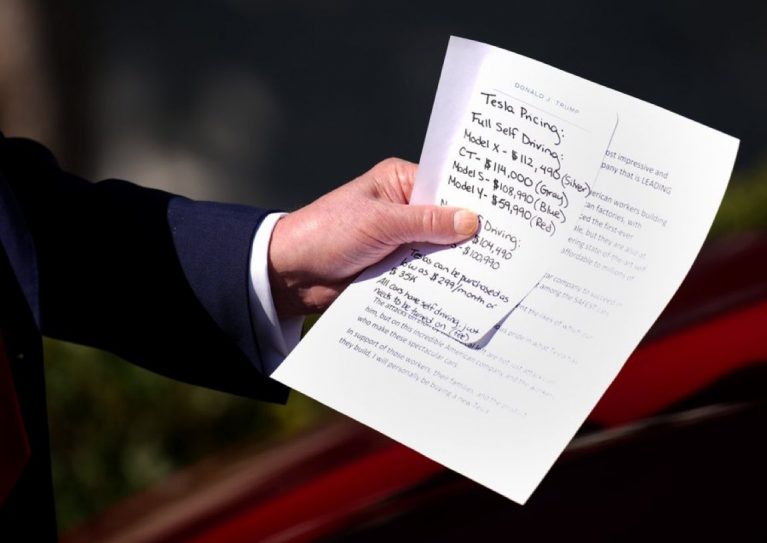 DONALD J. TRUMP
Tesla Pricing:
Full Self Driving:
Model X - $112,490 (Silver)
CT - $114,000 (Gray)
Model S - $108,990 (Blue)
Model Y - $59,990 (Red)
Driving:
$104,490
$100,990
Teslas can be purchased as
low as $299/month or
$35K
All cars have self driving, just
needs to be turned on
ost impressive and
pany that is LEADING
merican workers building
an factories, with
ced the first-ever
le, but they are also at
ering state of the art self
affordable to millions of
ar company to succeed in
among the SAFEST cars
ent the likes of which our
pride in what Tesla has
The attacks
are not just attacks on
him, but on this incredible American company and the
who make these spectacular cars.
In support of those workers, their families, and the product
they build, I will personally be buying a new Tesla